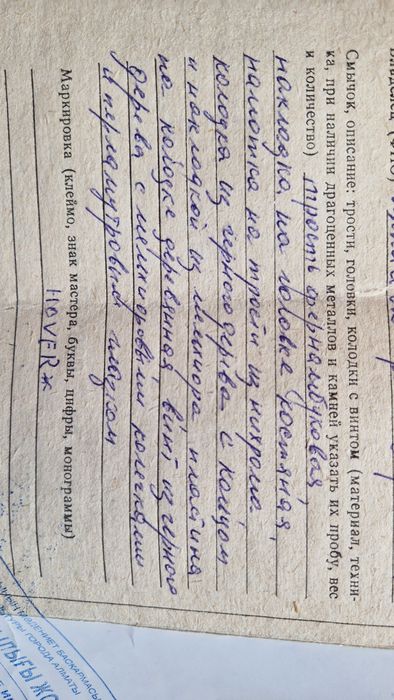 Владелец (ФИО)
Смычок, описание: трости, головки, колодки с винтом (материал, техни-
ка, при наличии драгоценных металлов и камней указать их пробу, вес
и количество) трость фернамбуковая
накладка на головке костяная
намотка на трости из нихрома.
колодка из черного дерева с кольцом
и накладкой из мельхиора пластина
на колодке деревянная, винт из черного
дерева с мельхиоровыми колечками
и перламутровым глазком
Маркировка (клеймо, знак мастера, буквы, цифры, монограммы)
HOVER *
БАСҚАРМАСЫ
ГОРОДА АЛМАТЫ